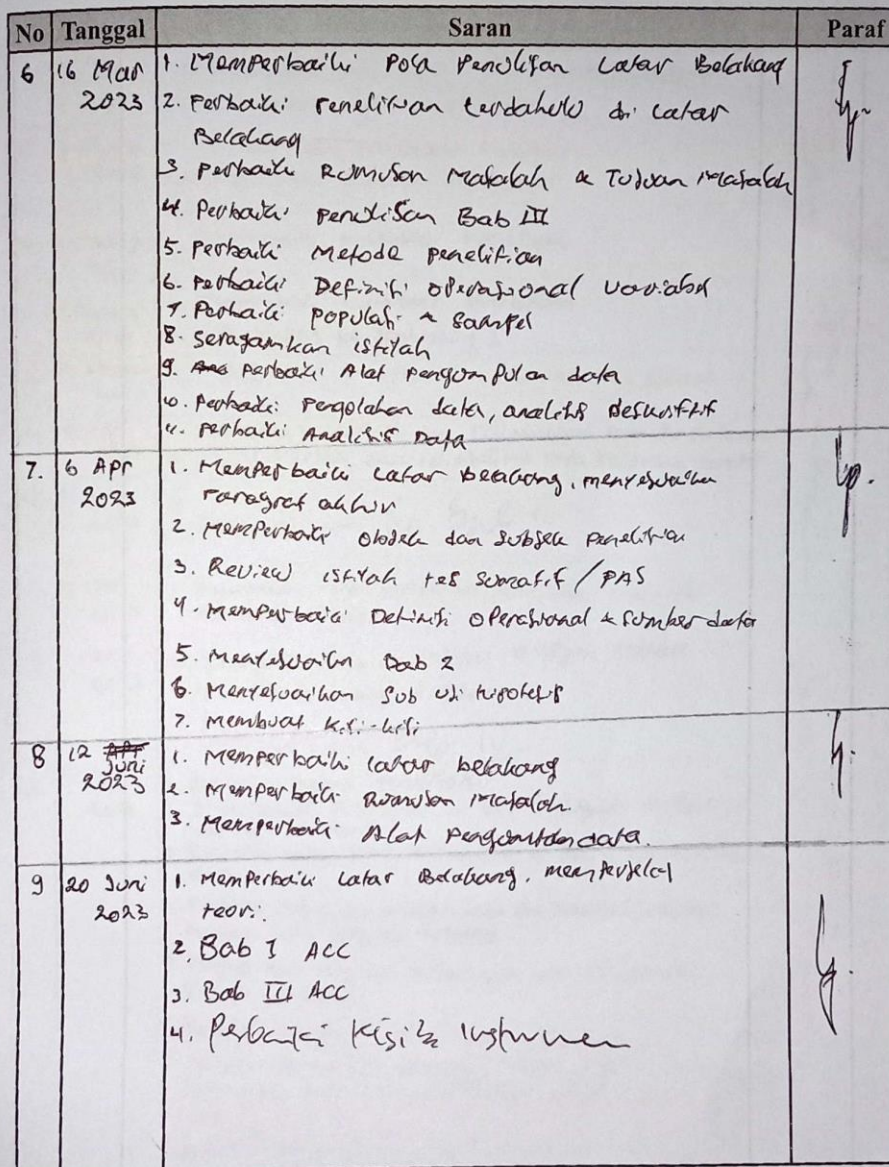 No Tanggal Saran Paraf
6 16 Mar 2023
1. Memperbaiki Pola Penulisan Latar Belakang
2. Perbaiki Penelitian terdahulu di Latar
Belakang
3. Perbaiki Rumusan Masalah & Tujuan Masalah
4. Perbaiki Penulisan Bab III
5. Perbaiki Metode Penelitian
6. Perbaiki Definisi Operasional Variabel
7. Perbaiki Populasi & Sampel
8. Seragamkan istilah
9. Perbaiki Alat Pengumpulan data
10. Perbaiki Pengolahan data, analisis Deskriptif
11. Perbaiki Analisis Data
7. 6 Apr 2023
1. Memperbaiki Latar Belakang, menyesuaikan
Paragraf akhir
2. Memperbaiki Objek dan Subjek Penelitian
3. Review istilah tes sumatif / PAS
4. Memperbaiki Definisi Operasional & Sumber data
5. Menyesuaikan Bab 2
6. Menyesuaikan Sub Uji Hipotesis
7. Membuat Kisi-kisi
8 12 Juni 2023
1. Memperbaiki latar belakang
2. Memperbaiki Rumusan Masalah
3. Memperbaiki Alat Pengumpulan data.
9 20 Juni 2023
1. Memperbaiki Latar Belakang, memperjelas
teori.
2. Bab I ACC
3. Bab III ACC
4. Perbaiki Kisi2 Instrumen